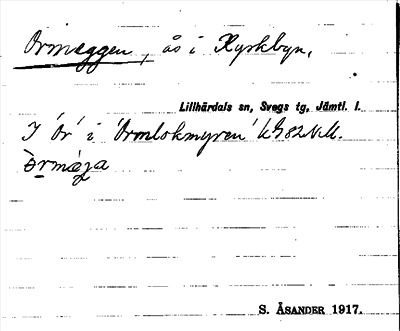 Ormeggen, ås i Kyrkbyn,
Lillhärdals sn, Svegs tg, Jämtl. l.
I 'Or' i 'Ormlokmyren'
S. ÅSANDER 1917.